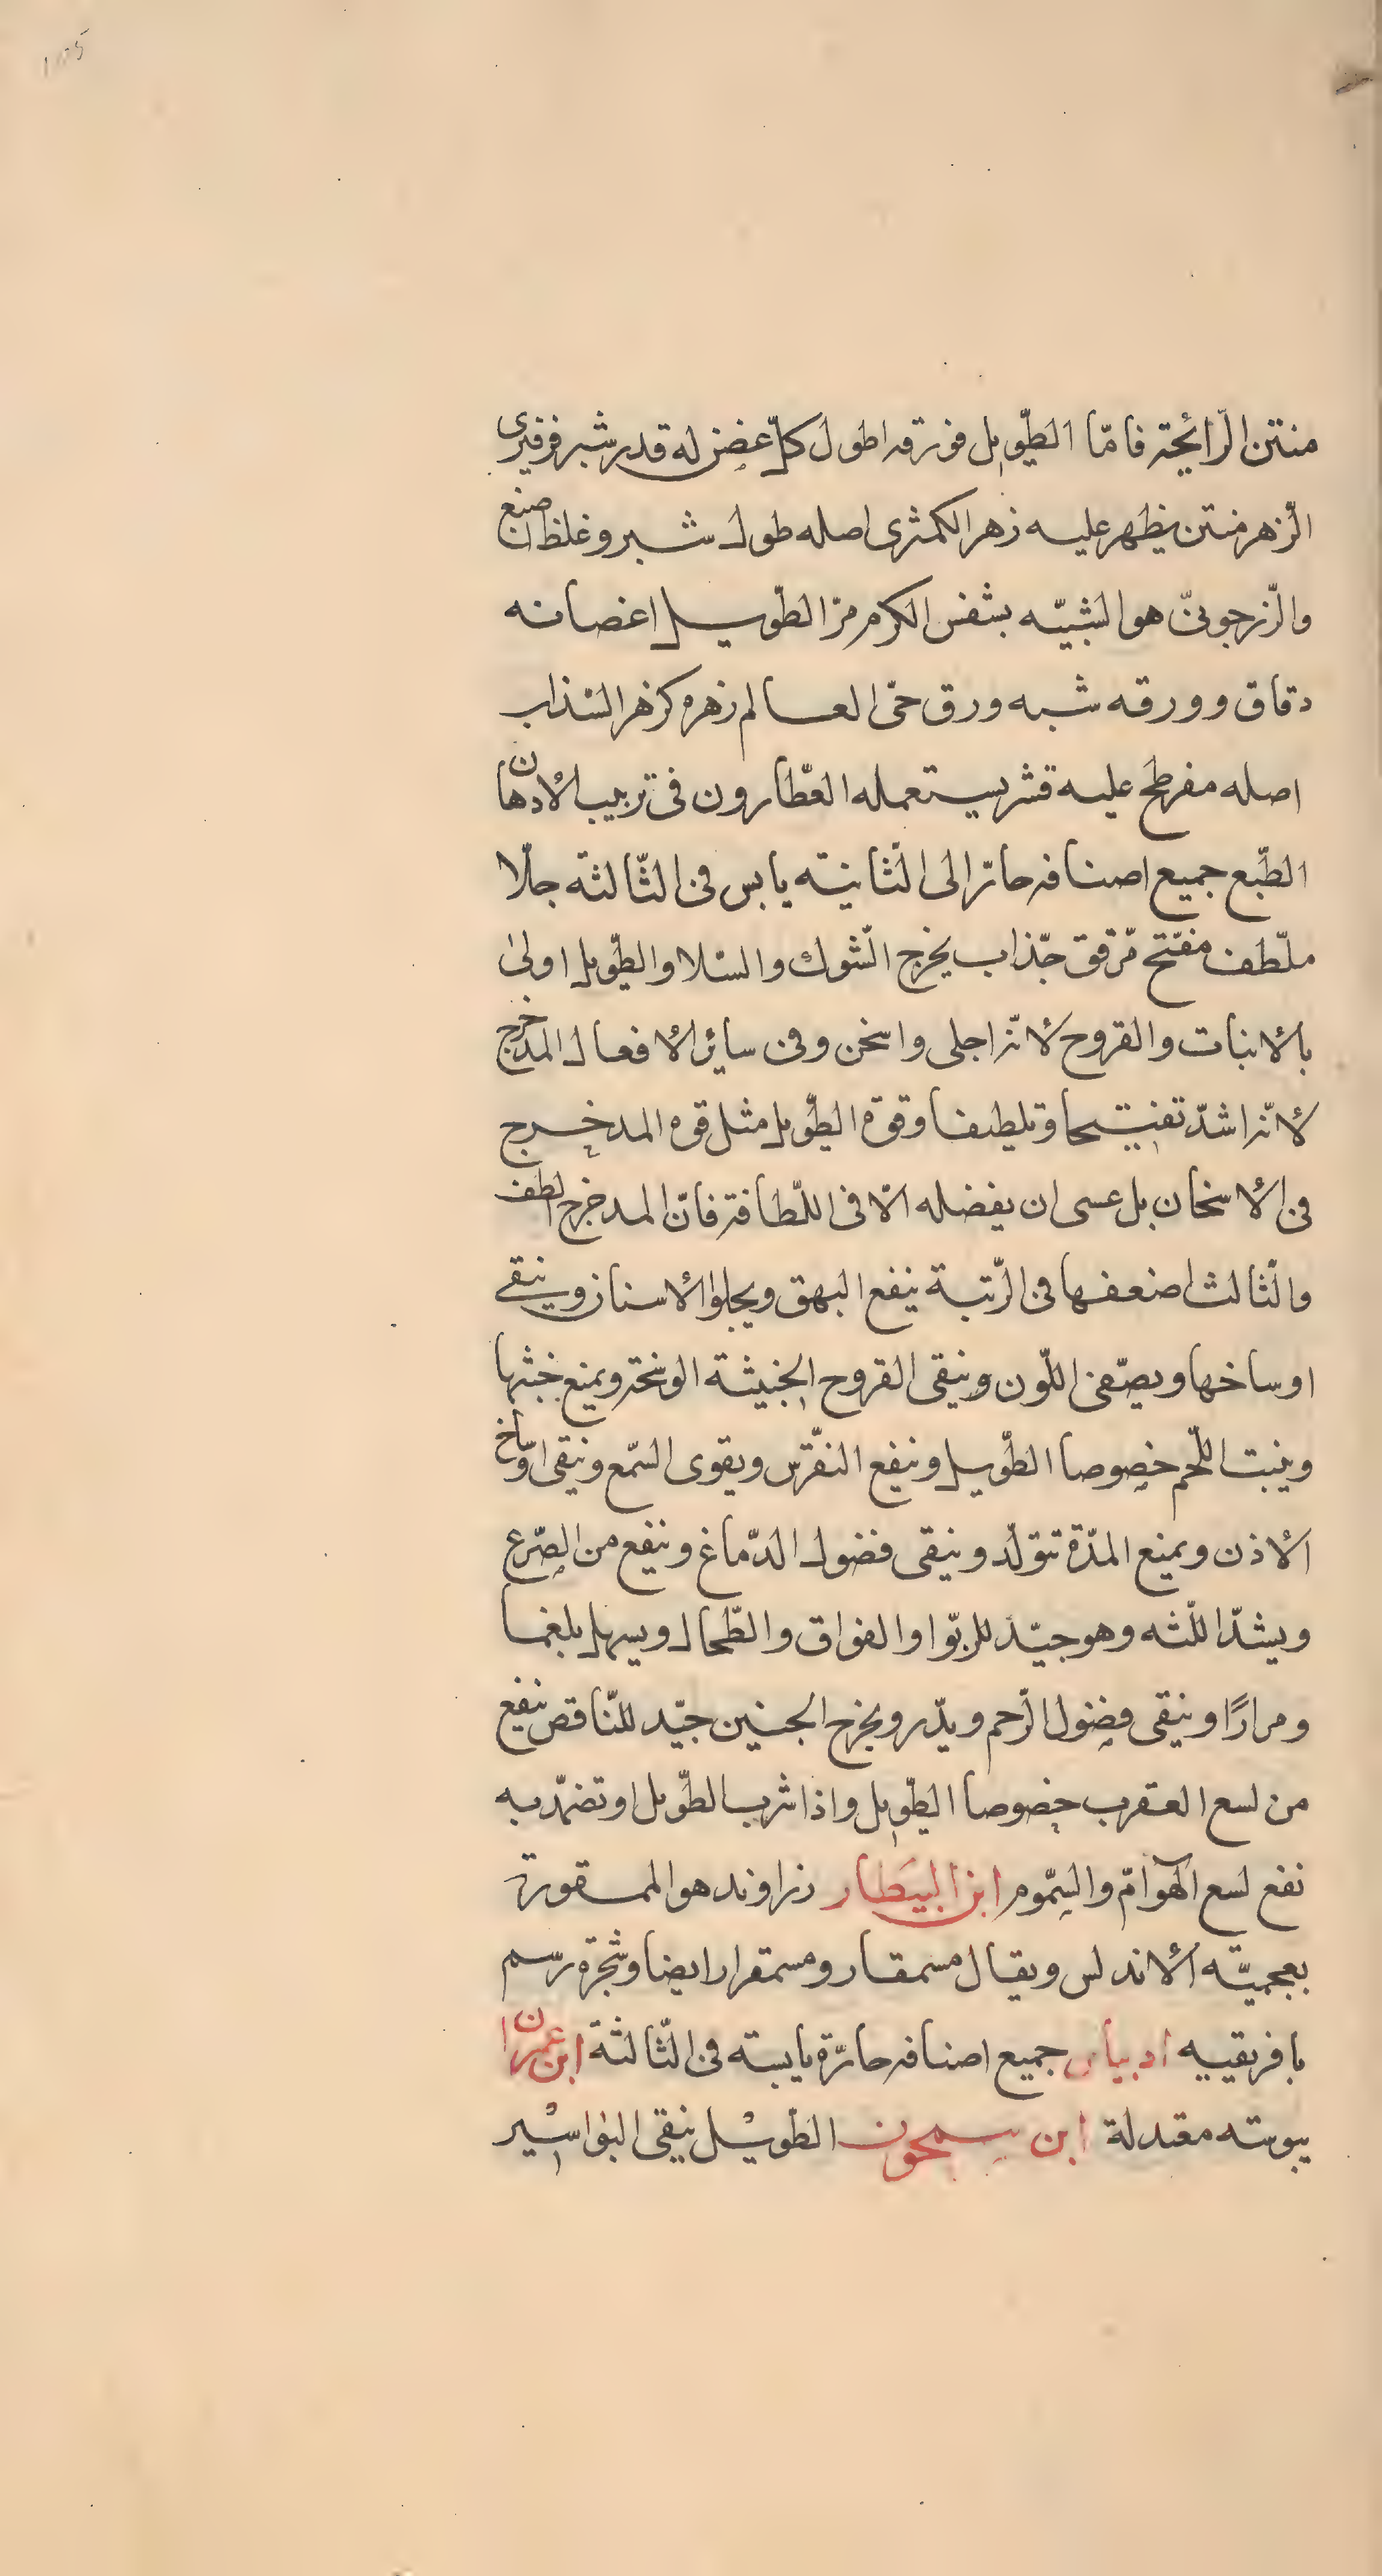 منتن الرّائحة فامّا الطّويل فورقه اطول كلّ غصن له قدر شبر فرفيرى
الزّهر منتن يظهر عليه زهر الكمثرى اصله طول شبر وغلظ اصبع
والزّرجونىّ هو الشّبيه بشفس الكرم مرّ الطّويل اغصانه
دقاق وورقه شبه ورق حىّ العالم زهره كزهر السّذاب
اصله مفرطح عليه قشر يستعمله العطّارون فى تربيب الأدهان
الطّبع جميع اصنافه حارّ الى الثّانية يابس فى الثّالثة جلّا
ملطّف مفتّح مرقّق جذّاب يخرج الشّوك والسّلا والطّويل اولى
بالأنبات والقروح لأنّه اجلى واسخن وفى سائر الأفعال المدخرج
لأنّه اشدّ تفتيحا وتلطيفا وقوّة الطّويل مثل قوه المدخرج
فى الأسخان بل عسى ان يفضله الّا فى اللّطافة فانّ المدخرج الطف
والثّالث اضعفها فى الرّتبة ينفع البهق ويجلوا الأسنان وينقى
اوساخها ويصفّى اللّون وينقى القروح الخبيثة الوسخة ويمنع خبثها
وينبت اللّحم خصوصا الطّويل وينفع النّقرس ويقوى السّمع وينقى اوساخ
الأذن ويمنع المدّة تتولّد وينقى فضول الدّماغ وينفع من الصّرع
ويشدّ اللّثه وهو جيّد للربّوا والفواق والطّحال ويسهل بلغما
ومرارًا وينقى فضول الرّحم ويدّر ويخرج الجنين جيّد للنّاقص ينفع
من لسع العقرب خصوصا الطّويل واذا شرب الطّويل او تضمّد به
نفع لسع الهوآمّ والسّموم ابن البيطار زراوند هو المسقورة
بعجميّة الأندلس ويقال مسمقار ومسمقرار ايضا وشجرة رسم
بافريقييه ادبياس جميع اصنافه حارّة يابسة فى الثّالثة ابن عمران
يبوسته معتدلة ابن سمجون الطّويل ينقى البواسير